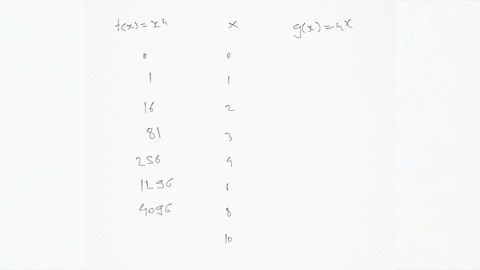 f(x)=x4 x g(x)=4x
0 0
1 1
16 2
81 3
256 4
1296 6
4096 8
10